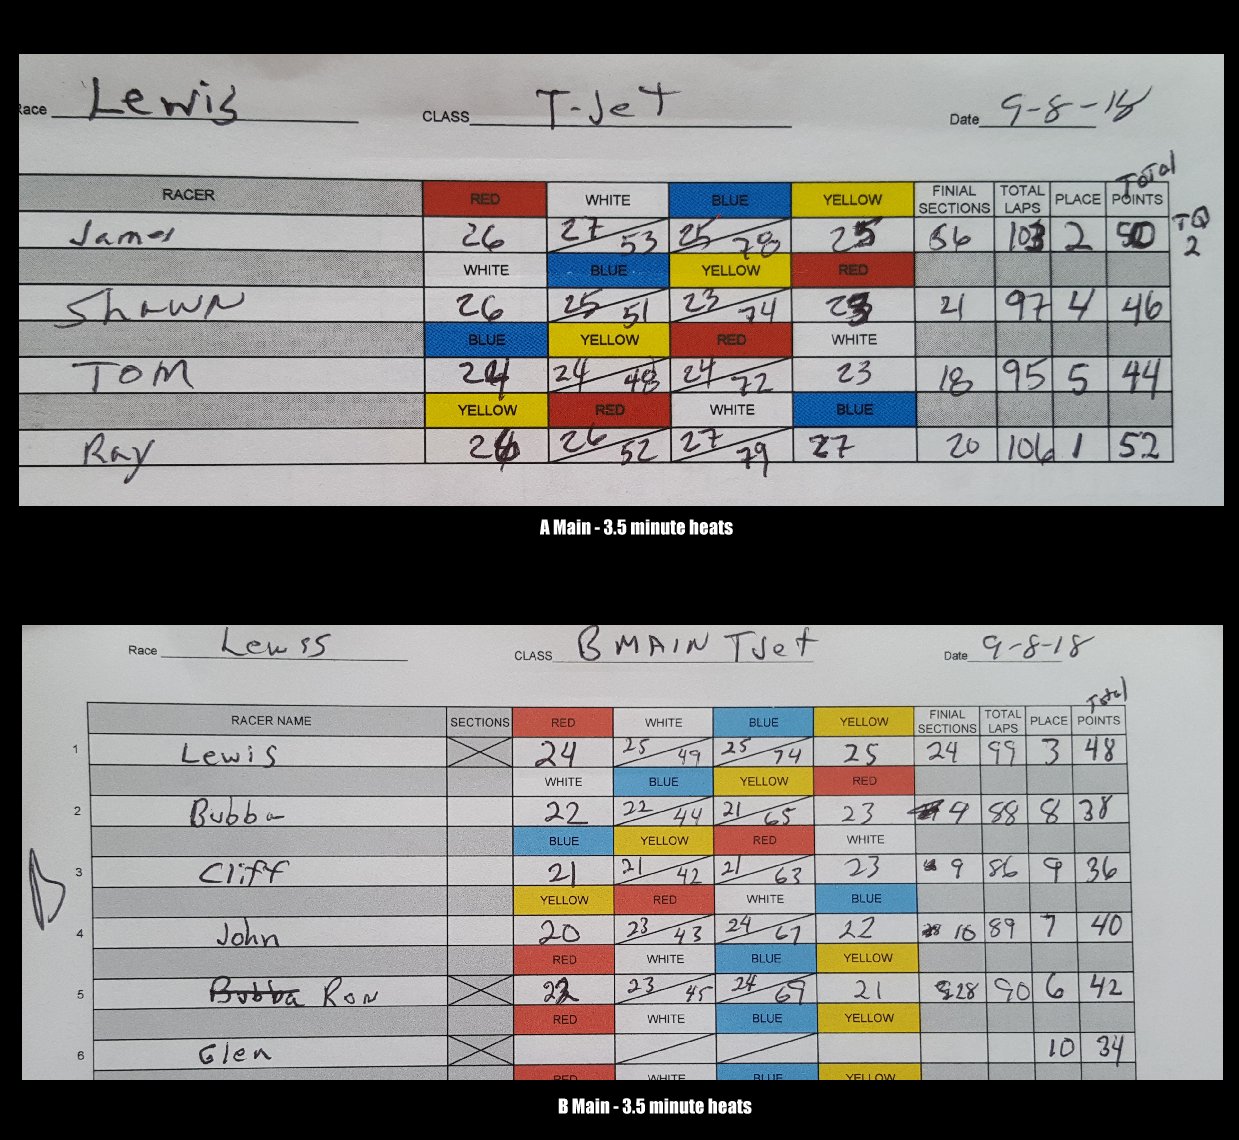 Race Lewis CLASS T-Jet Date 9-8-18
RACER RED WHITE BLUE YELLOW FINIAL SECTIONS TOTAL LAPS PLACE Total POINTS
James 26 27 53 25 78 25 56 103 2 50 TQ 2
WHITE BLUE YELLOW RED
Shawn 26 25 51 23 74 23 21 97 4 46
BLUE YELLOW RED WHITE
Tom 24 24 48 24 72 23 18 95 5 44
YELLOW RED WHITE BLUE
Ray 26 26 52 27 79 27 20 106 1 52
A Main - 3.5 minute heats
Race Lewis CLASS B MAIN TJet Date 9-8-18
RACER NAME SECTIONS RED WHITE BLUE YELLOW FINIAL SECTIONS TOTAL LAPS PLACE Total POINTS
1 Lewis 24 25 49 25 74 25 24 99 3 48
WHITE BLUE YELLOW RED
2 Bubba 22 22 44 21 65 23 9 88 8 38
BLUE YELLOW RED WHITE
3 Cliff 21 21 42 21 63 23 9 86 9 36
YELLOW RED WHITE BLUE
4 John 20 23 43 24 67 22 16 89 7 40
RED WHITE BLUE YELLOW
5 Bubba Ron 22 23 45 24 69 21 28 90 6 42
RED WHITE BLUE YELLOW
6 Glen 10 34
RED WHITE BLUE YELLOW
B Main - 3.5 minute heats